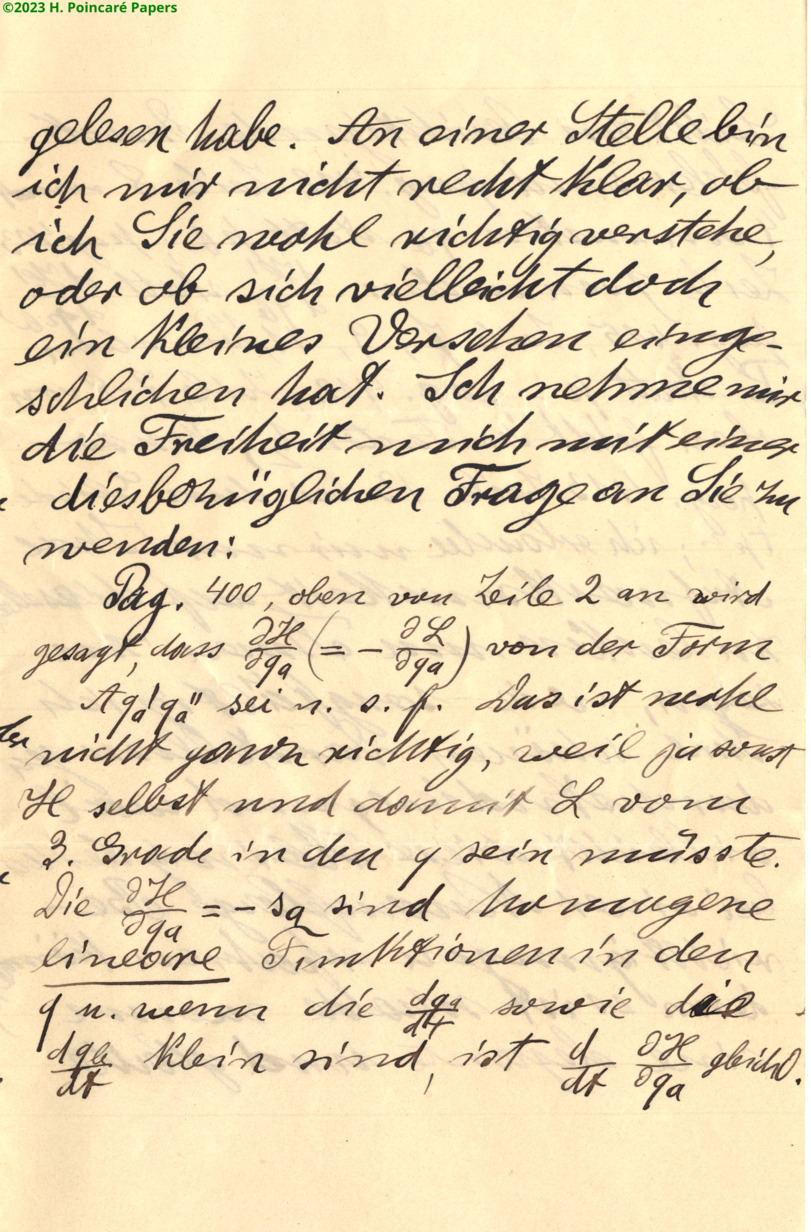 ©2023 H. Poincaré Papers
gelesen habe. An einer Stelle bin
ich mir nicht recht klar, ob
ich Sie wohl richtig verstehe,
oder ob sich vielleicht doch
ein kleines Versehen einge-
schlichen hat. Ich nehme mir
die Freiheit mich mit einer
diesbezüglichen Frage an Sie zu
wenden:
Pag. 400, oben von Zeile 2 an wird
gesagt, dass ∂H/∂qa (= − ∂L/∂qa) von der Form
A qa' qa'' sei u. s. f. Das ist wohl
nicht ganz richtig, weil ja sonst
H selbst und damit L vom
3. Grade in den q sein müsste.
Die ∂H/∂qa = − sa sind homogene
lineare Funktionen in den
q u. wenn die dqa/dt sowie die
dqb/dt klein sind, ist d/dt ∂H/∂qa gleich 0.